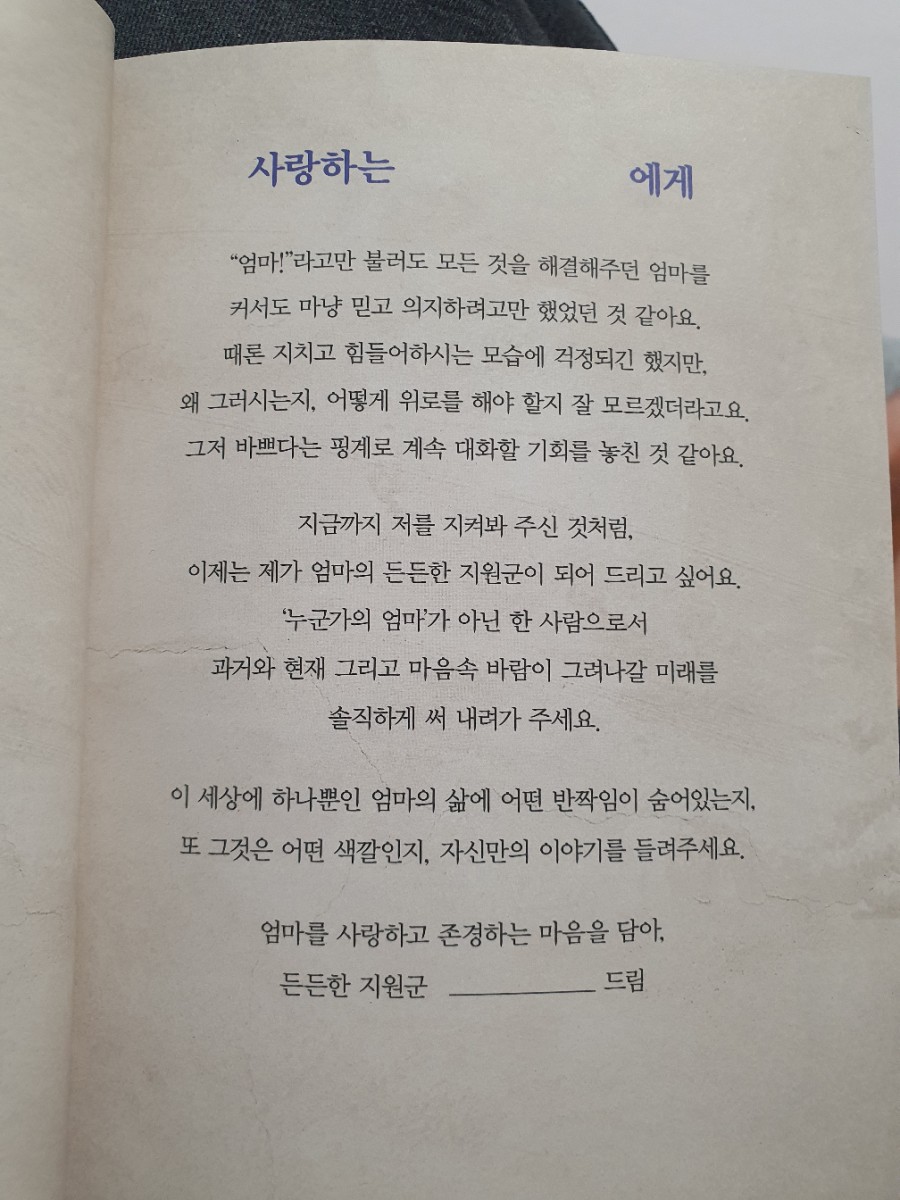 사랑하는 에게
“엄마!”라고만 불러도 모든 것을 해결해주던 엄마를
커서도 마냥 믿고 의지하려고만 했었던 것 같아요.
때론 지치고 힘들어하시는 모습에 걱정되긴 했지만,
왜 그러시는지, 어떻게 위로를 해야 할지 잘 모르겠더라고요.
그저 바쁘다는 핑계로 계속 대화할 기회를 놓친 것 같아요.
지금까지 저를 지켜봐 주신 것처럼,
이제는 제가 엄마의 든든한 지원군이 되어 드리고 싶어요.
‘누군가의 엄마’가 아닌 한 사람으로서
과거와 현재 그리고 마음속 바람이 그려나갈 미래를
솔직하게 써 내려가 주세요.
이 세상에 하나뿐인 엄마의 삶에 어떤 반짝임이 숨어있는지,
또 그것은 어떤 색깔인지, 자신만의 이야기를 들려주세요.
엄마를 사랑하고 존경하는 마음을 담아,
든든한 지원군 __________ 드림